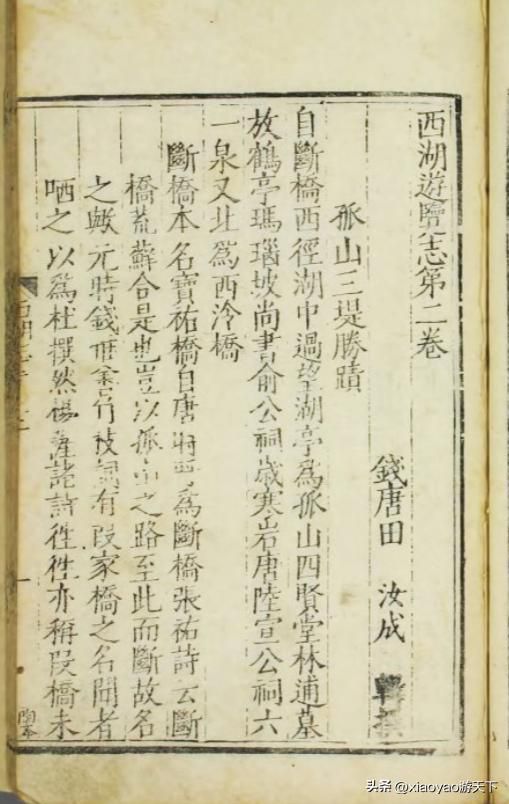 西湖遊覽志第二卷
錢唐田 汝成 輯撰
孤山三堤勝蹟
自斷橋西徑湖中過望湖亭爲孤山四賢堂林逋墓
放鶴亭瑪瑙坡尚書俞公祠歲寒岩唐陸宣公祠六
一泉又北爲西泠橋
斷橋本名寶祐橋自唐時呼爲斷橋張祐詩云斷
橋荒蘚合是也豈以孤山之路至此而斷故名
之歟元時錢惟善竹枝詞有段家橋之名聞者
哂之以爲杜撰然楊薩諸詩徃徃亦稱段橋未
頭条 @xiaoyao游天下